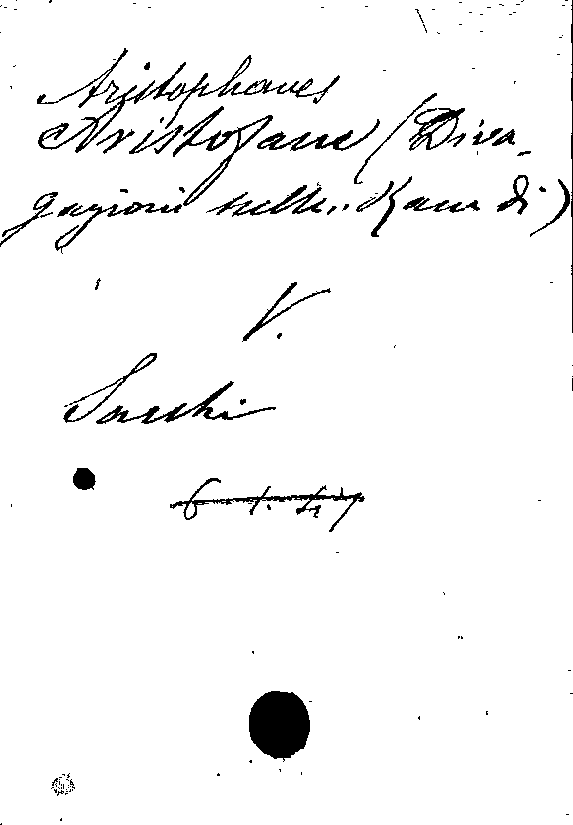 Aristophanes
Aristofane (Diva-
gazioni sulle "Rane di)
V.
Sacchi
6. 1. 47